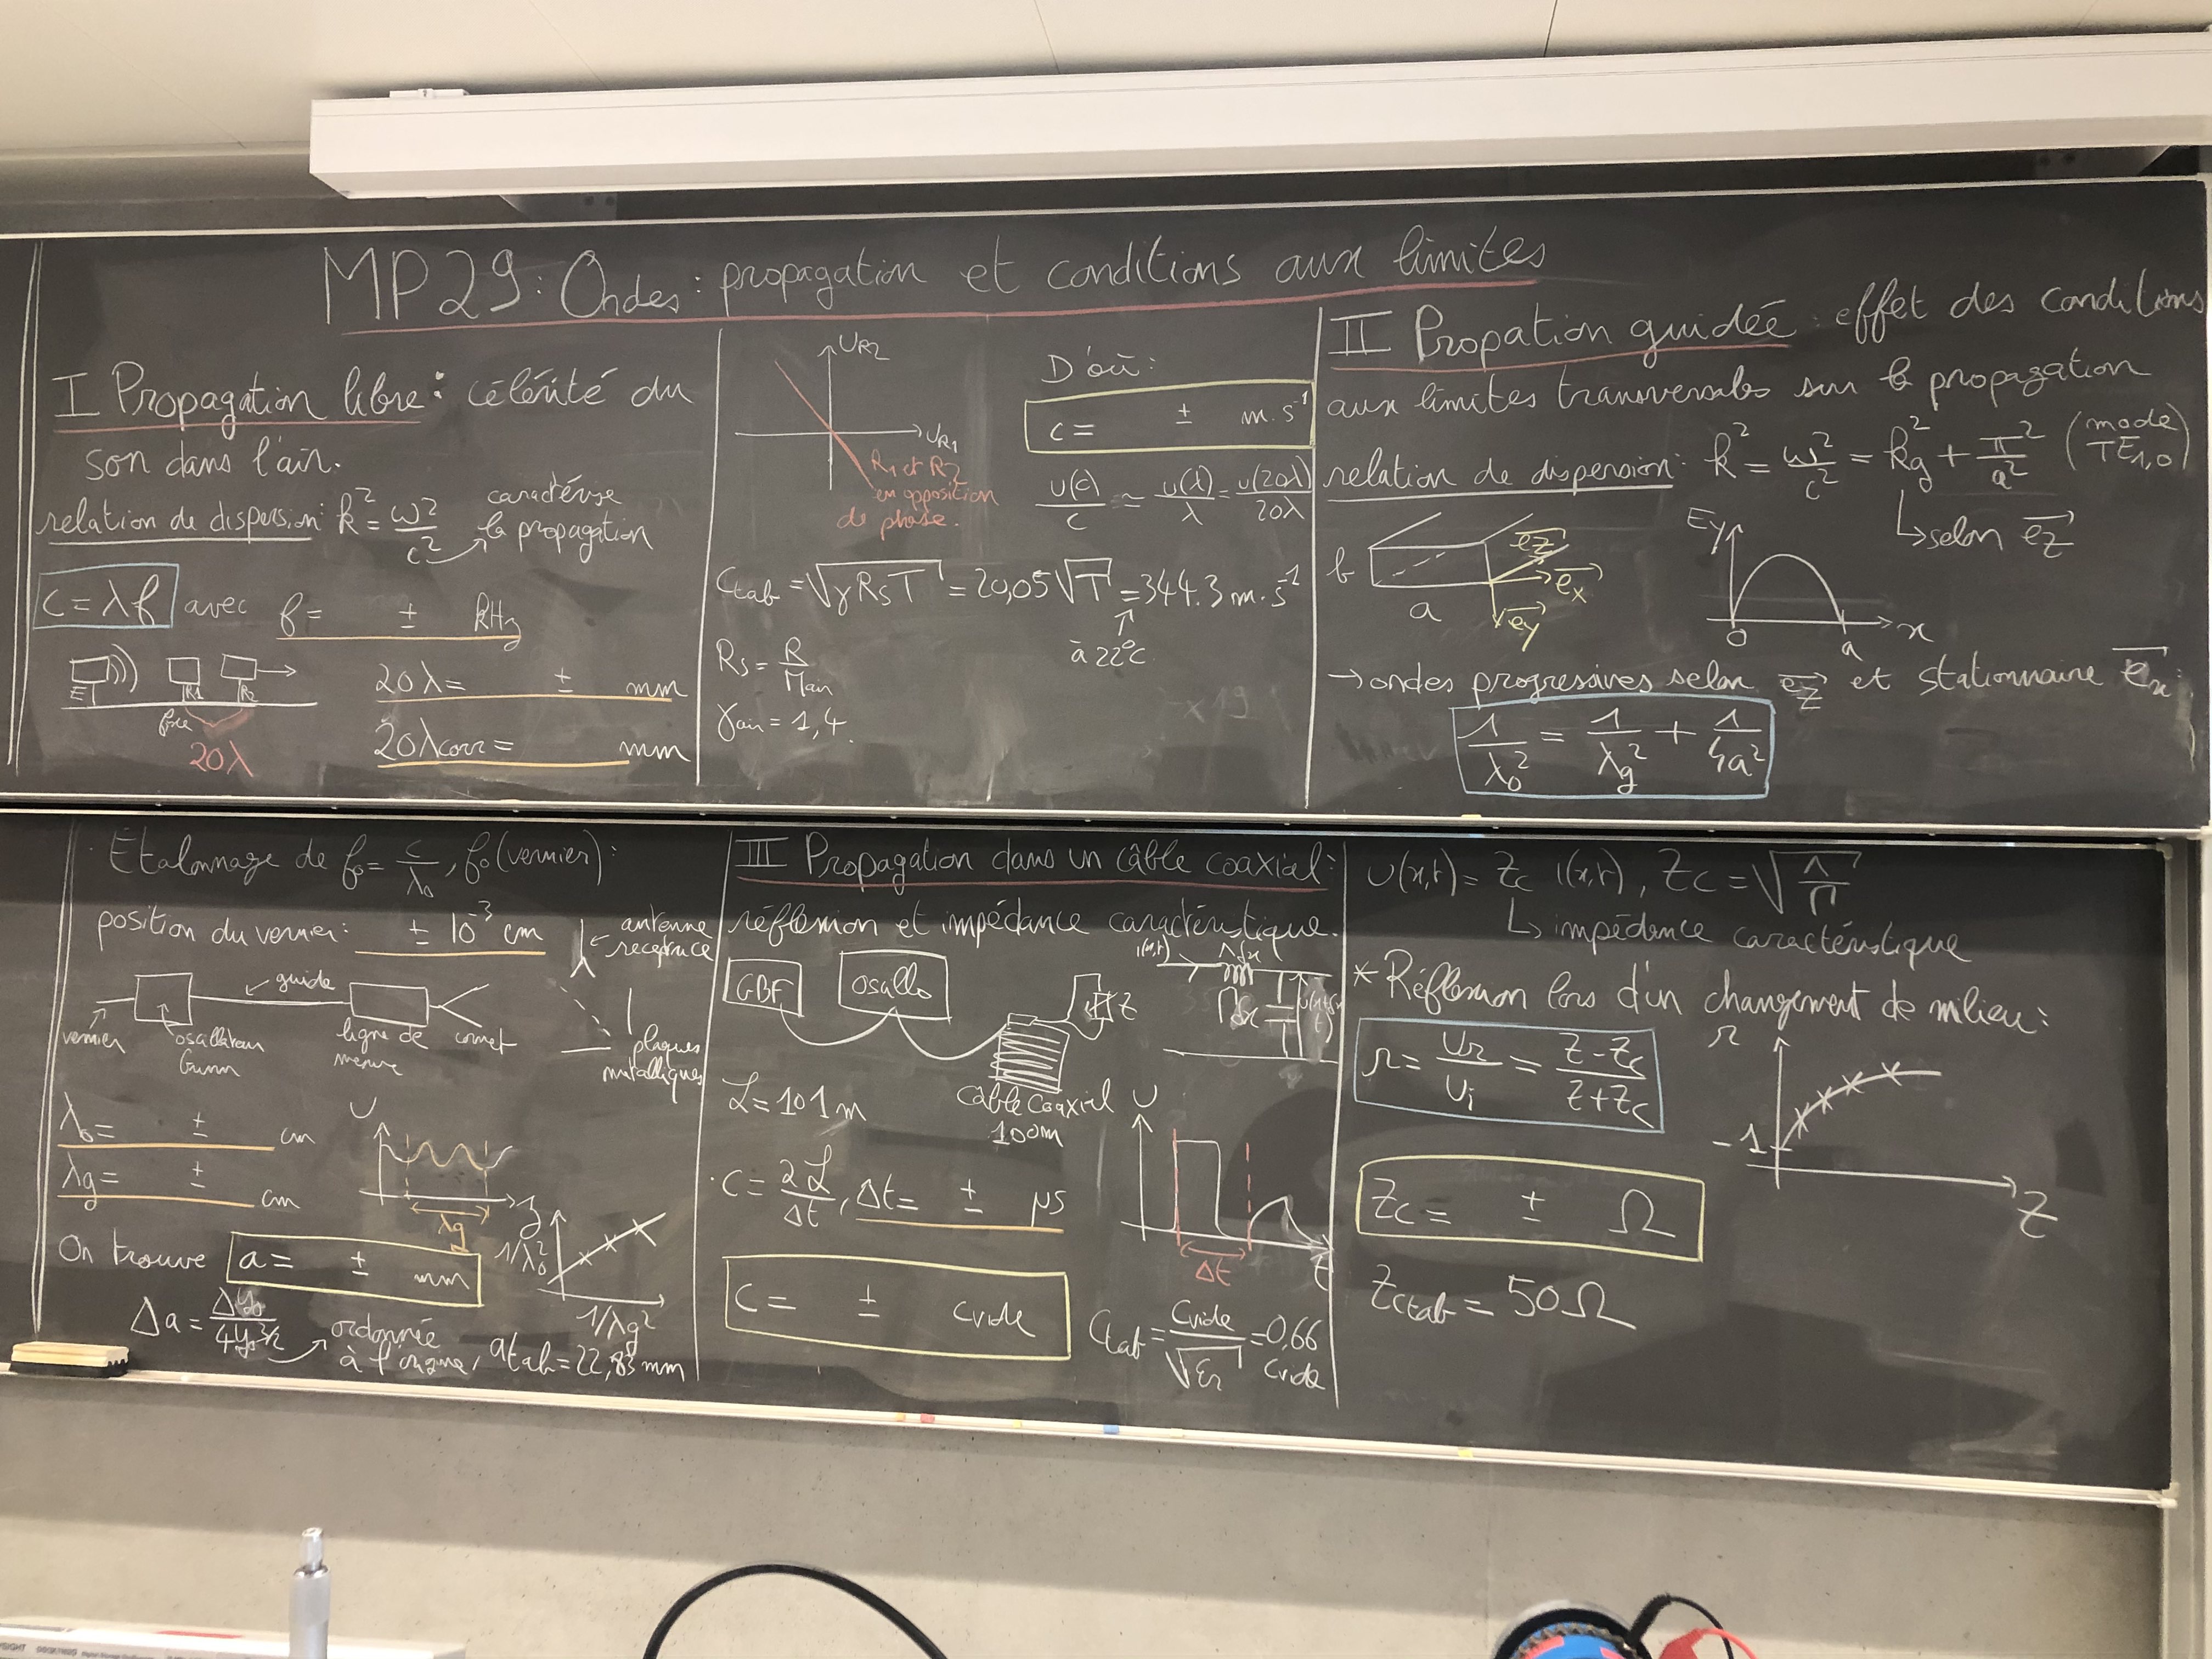 MP29: Ondes: propagation et conditions aux limites
I Propagation libre: célérité du
son dans l'air.
relation de dispersion: k² = ω²/c² caractérise
la propagation
c = λf avec f = ± kHz
E R1 R2
fixe
20λ
20λ = ± mm
20λcorr = mm
UR2
UR1
R1 et R2
en opposition
de phase.
D'où:
c = ± m.s⁻¹
u(c)/c ≈ u(λ)/λ = u(20λ)/20λ
Ctab = √(γRsT) = 20,05√T = 344.3 m.s⁻¹
à 22°C
Rs = R/Mair
γair = 1,4.
II Propation guidée: effet des conditions
aux limites transversales sur la propagation
relation de dispersion: k² = ω²/c² = kg² + π²/a² (mode TE1,0)
selon ez
b
a
ez
ex
ey
Ey
0
a
x
→ ondes progressives selon ez et stationnaire ex:
1/λ0² = 1/λg² + 1/4a²
Étalonnage de f0 = c/λ0, f0 (vernier):
position du vernier: ± 10⁻³ cm
antenne
receptrice
guide
vernier
oscillateur
Gunn
ligne de
mesure
cornet
plaques
métalliques
λ0 = ± cm
λg = ± cm
U
λg
z
On trouve a = ± mm
1/λ0²
1/λg²
Δa = Δy0/4y0^3/2 ordonnée
à l'origine, atab = 22,83 mm
III Propagation dans un câble coaxial:
réflexion et impédance caractéristique.
GBF
Oscillo
Z
i(x,t)
Λdx
Γdx
L = 101m
câble coaxial
100m
U
C = 2L/Δt, Δt = ± µs
Δt
t
C = ± Cvide
Ctab = Cvide/√εr = 0,66
Cvide
U(x,t) = Zc i(x,t), Zc = √(Λ/Γ)
impédence caractéristique
* Réflexion lors d'un changement de milieu:
r = Ur/Ui = Z-Zc/Z+Zc
r
-1
Z
Zc = ± Ω
Zctab = 50Ω